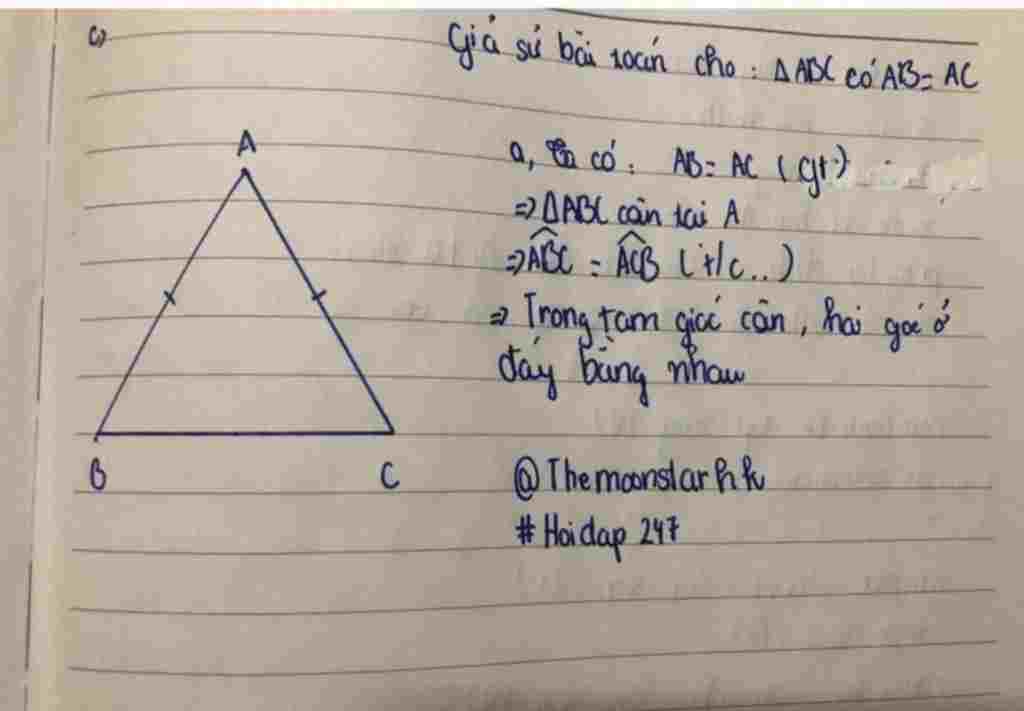 c)
Giả sử bài toán cho : ΔABC có AB = AC
A
a, Ta có : AB = AC (gt)
=> ΔABC cân tại A
=> \widehat{ABC} = \widehat{ACB} (t/c..)
=> Trong tam giác cân, hai góc ở
đáy bằng nhau
B C
@Themoonstarhk
# Hoidap 247